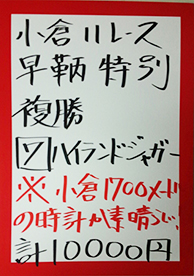 小倉11レース
早鞆特別
複勝
7ハイランドジャガー
※小倉1700メートル
の時計が素晴らしい
計10000円